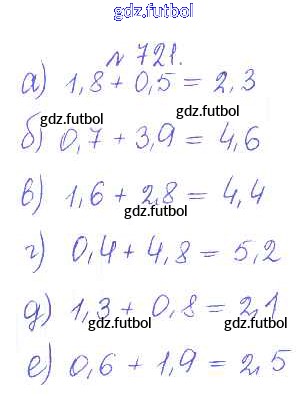 gdz.futbol
№ 721.
а) 1,8 + 0,5 = 2,3
gdz.futbol gdz.futbol
б) 0,7 + 3,9 = 4,6
в) 1,6 + 2,8 = 4,4
gdz.futbol
г) 0,4 + 4,8 = 5,2
д) 1,3 + 0,8 = 2,1
gdz.futbol gdz.futbol
е) 0,6 + 1,9 = 2,5